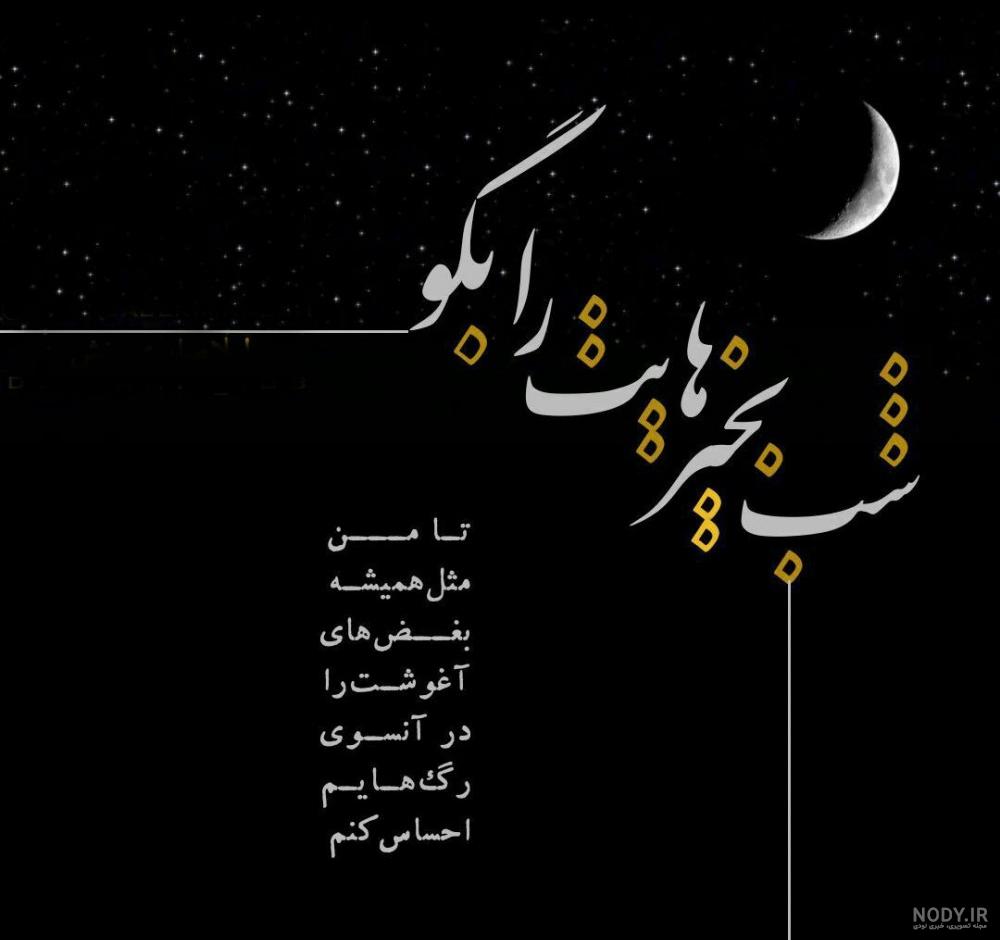 شب بخیرهایت را بگو
تا من
مثل همیشه
بغض‌های
آغوشت را
در آنسوی
رگ‌هایم
احساس کنم
NODY.IR
مجله تصویری، خبری نودی